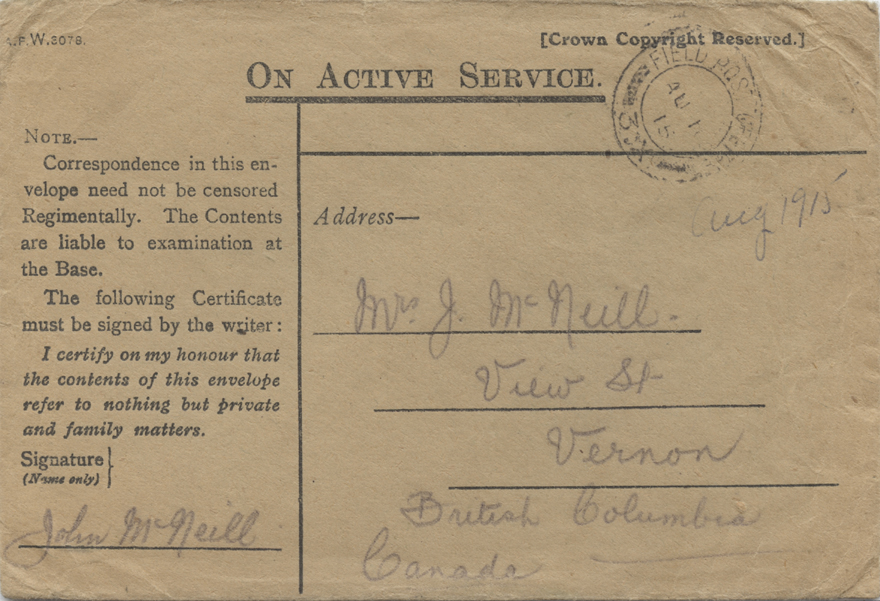 A.F.W.3078.
[Crown Copyright Reserved.]
ON ACTIVE SERVICE.
FIELD POST
3
AU
15
NOTE.—
Correspondence in this en-
velope need not be censored
Regimentally. The Contents
are liable to examination at
the Base.
The following Certificate
must be signed by the writer:
I certify on my honour that
the contents of this envelope
refer to nothing but private
and family matters.
Signature
(Name only)
John McNeill
Address—
Aug 1915
Mrs J. McNeill.
View St
Vernon
British Columbia
Canada